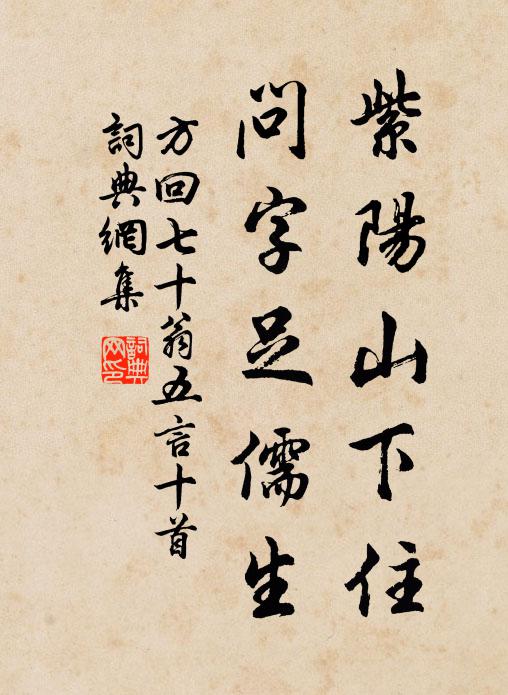 紫陽山下住
問字足儒生
方回七十翁五言十首
詞典網集
詞典网印